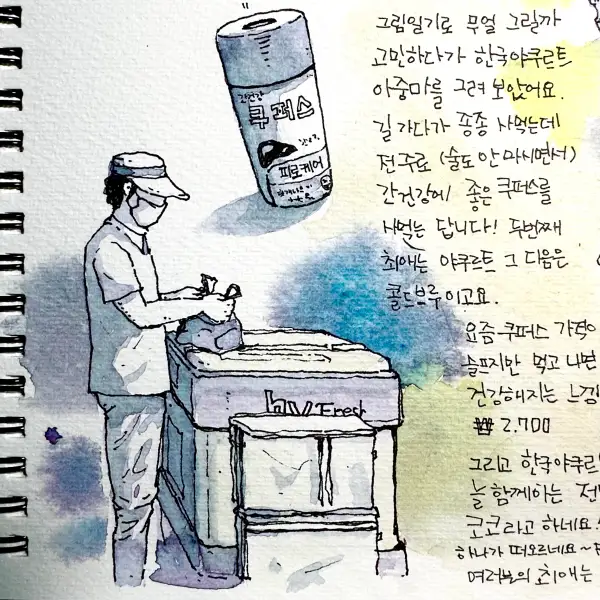 간건강
쿠퍼스
피로케어
hy Fresh
그림일기로 무얼 그릴까
고민하다가 한국야쿠르트
아줌마를 그려 보았어요.
길 가다가 종종 사먹는데
전 주로 (술도 안 마시면서)
간건강에 좋은 쿠퍼스를
사먹는 답니다! 두번째
최애는 야쿠르트 그 다음은
콜드브루이고요.
요즘 쿠퍼스 가격이
슬프지만 먹고 나면
건강해지는 느낌
₩ 2.700
그리고 한국야쿠르
늘 함께하는 전
코코라고 하네요
하나가 떠오르네요~
여러분의 최애는